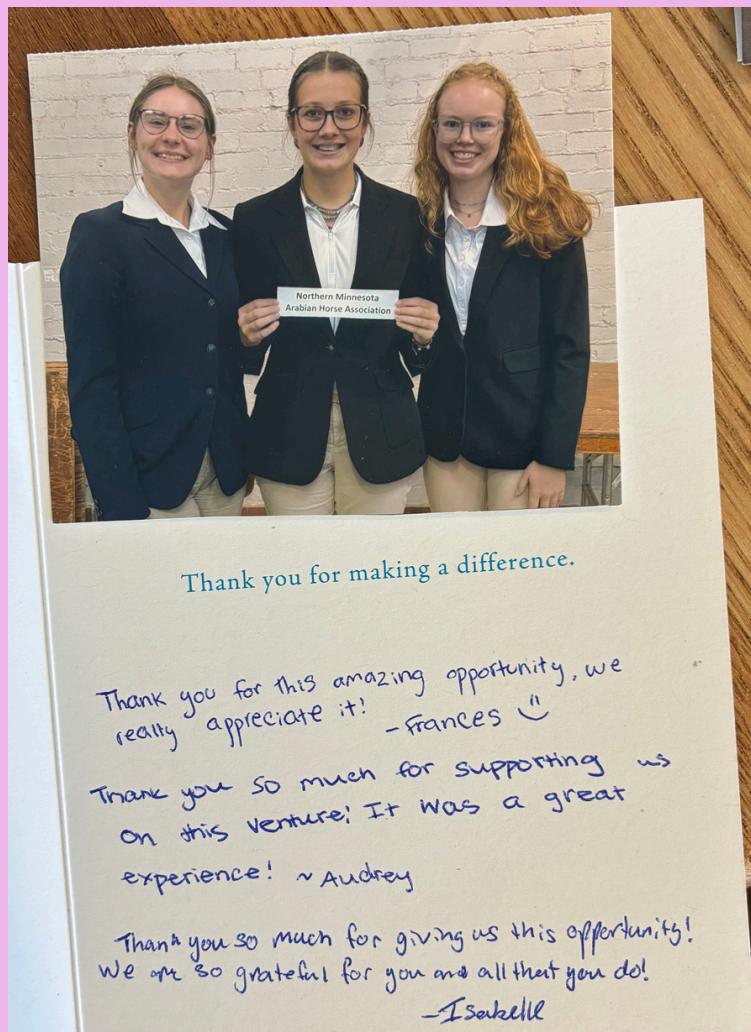 Northern Minnesota
Arabian Horse Association
Thank you for making a difference.
Thank you for this amazing opportunity, we
really appreciate it!
-Frances
Thank you so much for supporting us
on this venture! It was a great
experience! ~ Audrey
Thank you so much for giving us this oppertunity!
We are so grateful for you and all that you do!
-Isabelle